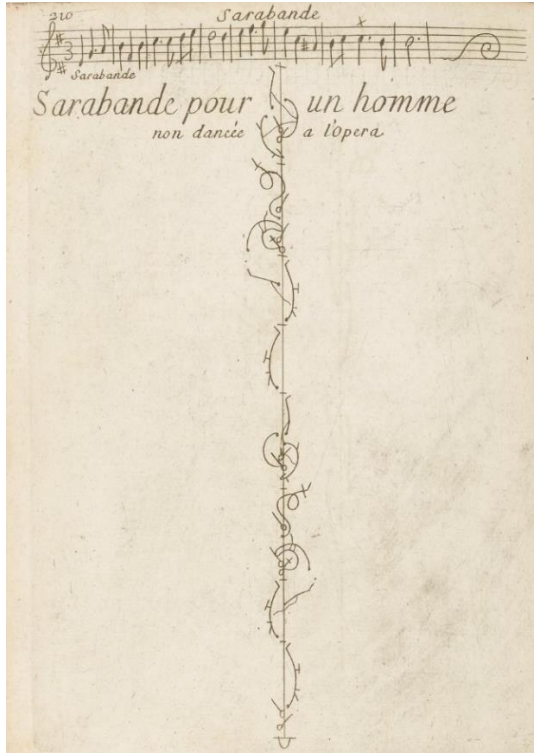 210
Sarabande
3
Sarabande
Sarabande pour un homme
non dancée a l'opera